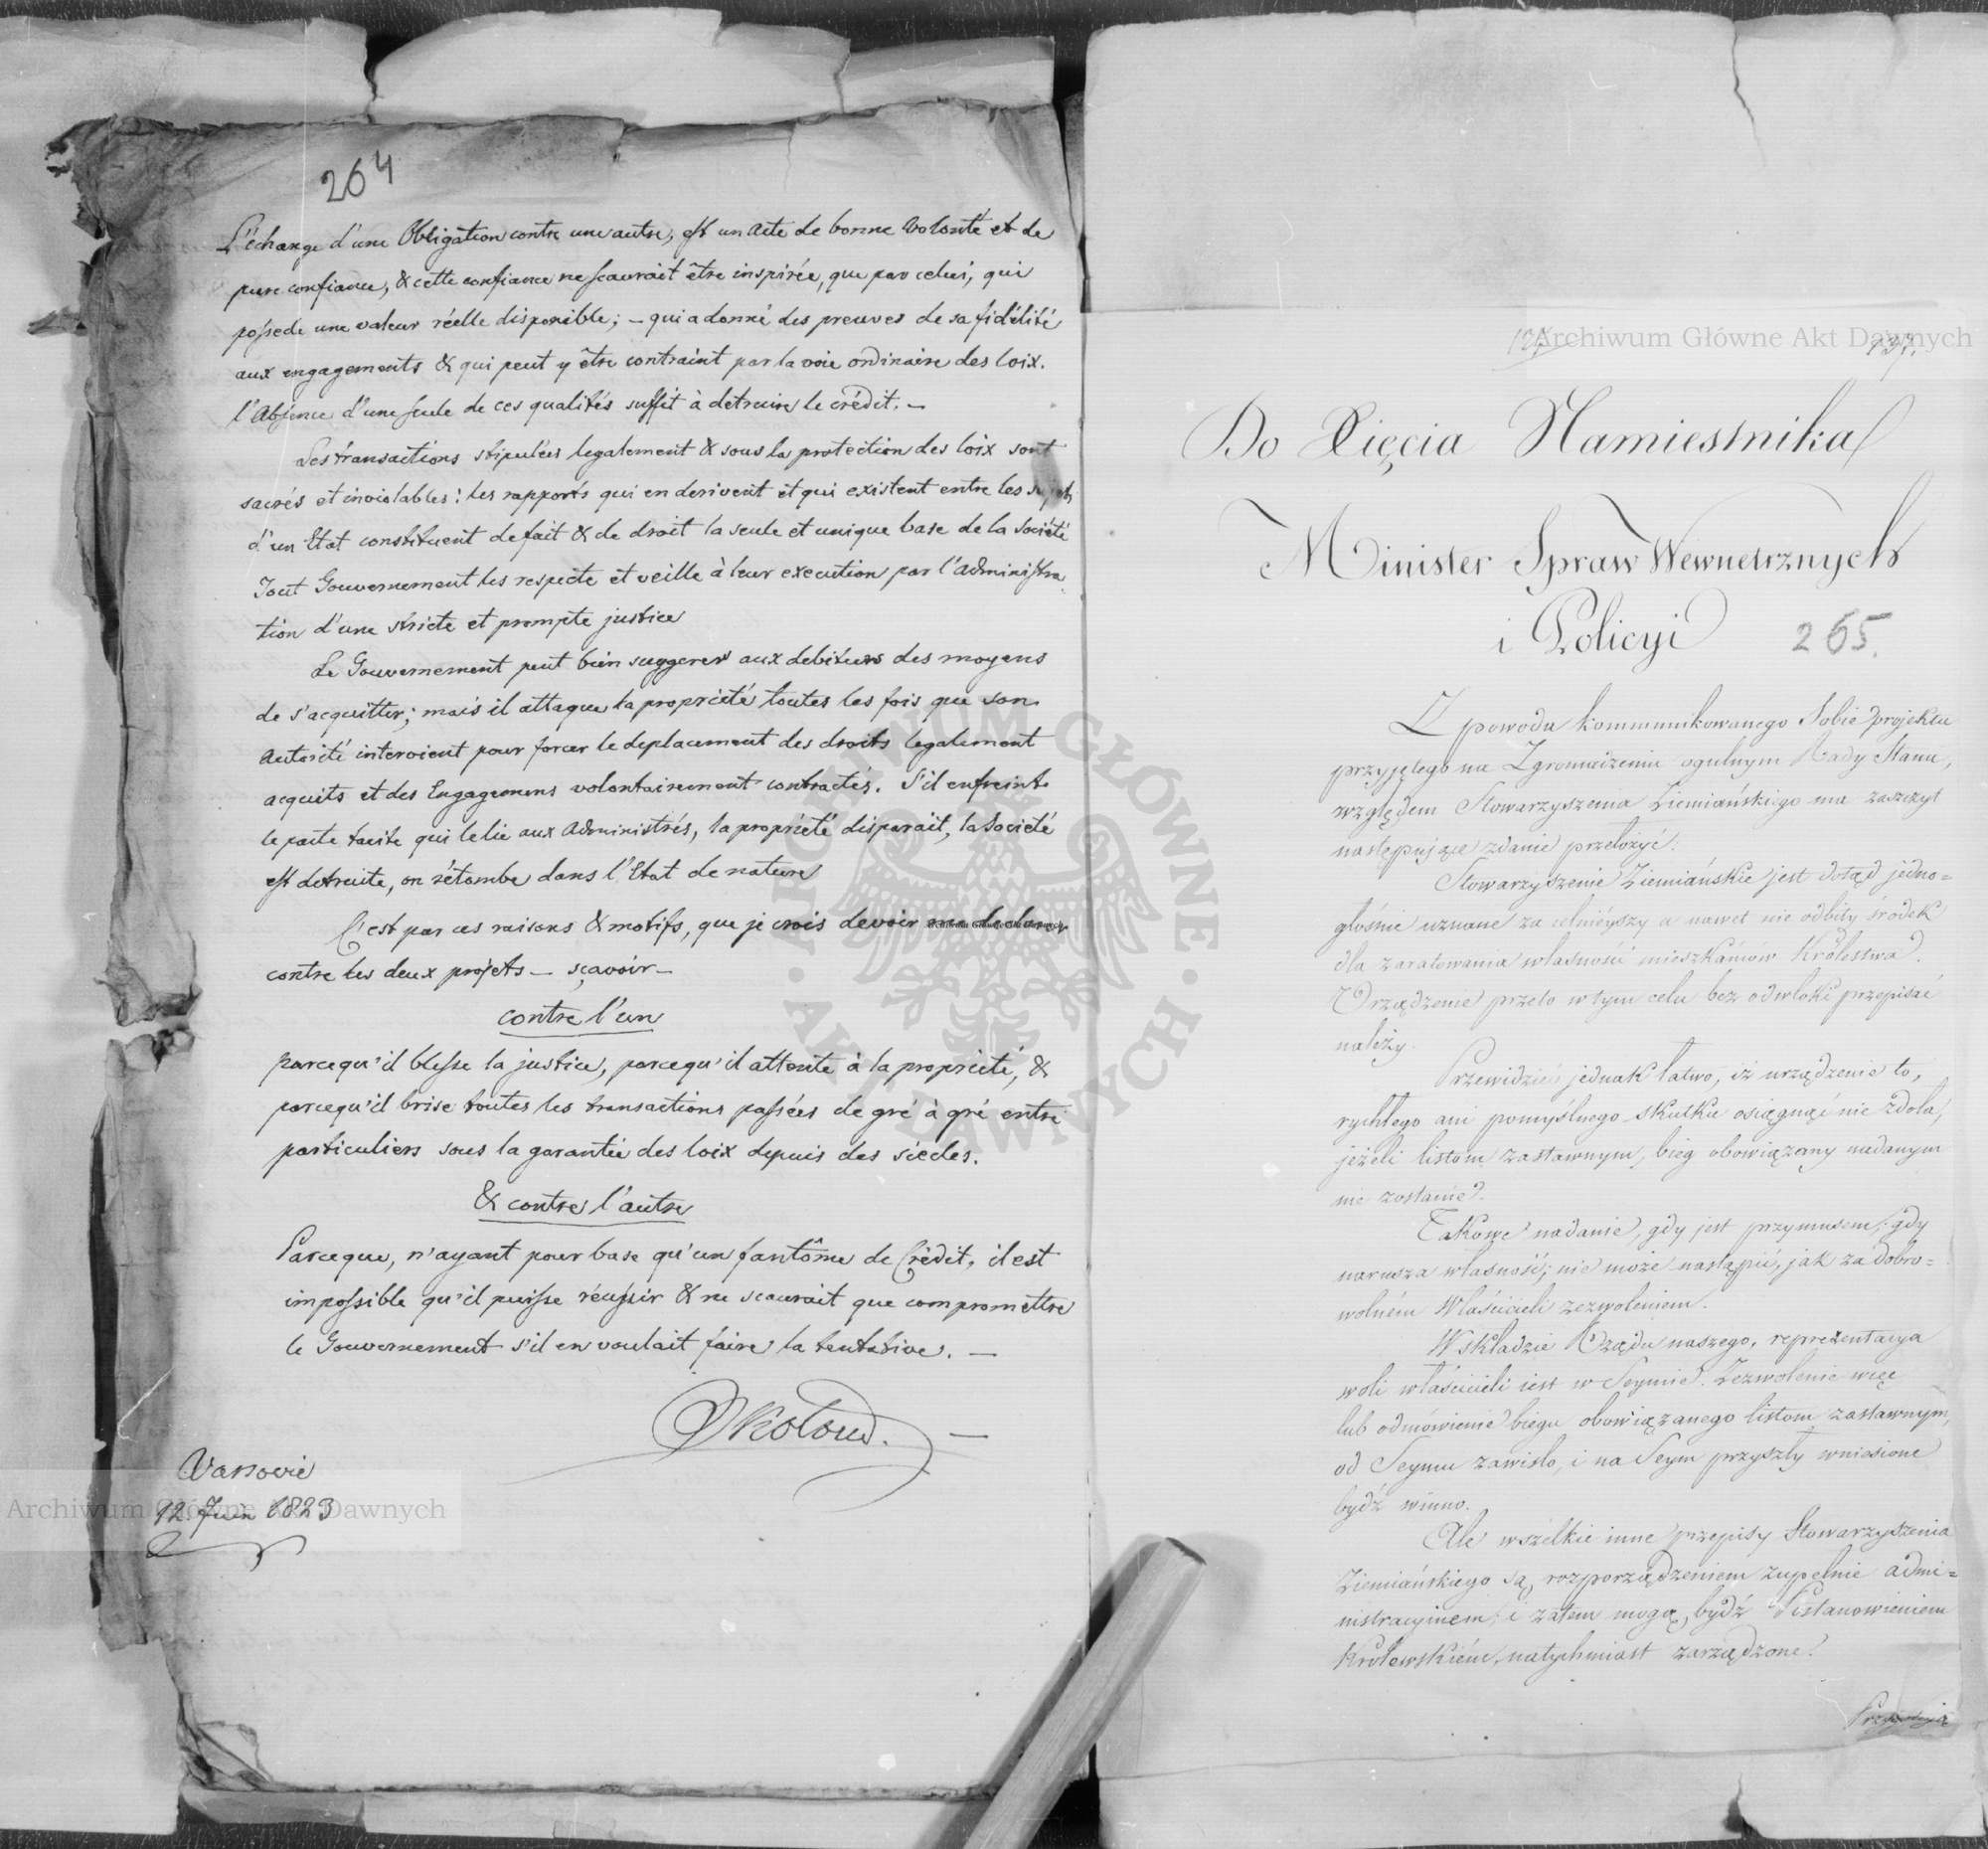 264
L'échange d'une Obligation contre une autre, est un acte de bonne volonté et de
pure confiance, & cette confiance ne scaurait être inspirée, que par celui, qui
possede une valeur réelle disponible; – qui a donné des preuves de sa fidélité
aux engagements & qui peut y être contraint par la voie ordinaire des loix.
l'Absence d'une seule de ces qualités suffit à detruire le crédit. –
Les transactions stipulées legalement & sous la protection des loix sont
sacrés et inviolables: les rapports qui en derivent et qui existent entre les sujets
d'un Etat constituent de fait & de droit la seule et unique base de la Société
Tout Gouvernement les respecte et veille à leur execution par l'administra
tion d'une stricte et prompte justice
Le Gouvernement peut bien suggerer aux debiteurs des moyens
de s'acquitter; mais il attaque la propriété toutes les fois que son
autorité intervient pour forcer le deplacement des droits legalement
acquits et des Engagemens volontairement contractés. S'il enfreint
le pacte tacite qui le lie aux Administrés, la propriété disparait, la Société
est detruite, on rétombe dans l'Etat de nature
C'est par ces raisons & motifs, que je crois devoir me declarer
contre les deux projets – sçavoir –
contre l'un
parcequ'il blesse la justice, parcequ'il attente à la propriété, &
parcequ'il brise toutes les transactions passées de gré à gré entre
particuliers sous la garantie des loix depuis des siècles.
& contre l'autre
Parceque, n'ayant pour base qu'un fantôme de Crédit, il est
impossible qu'il puisse réussir & ne scaurait que compromettre
le Gouvernement s'il en voulait faire la tentative. –
Varsovie
12. Juin 1823
Archiwum Główne Akt Dawnych
ARCHIWUM GŁÓWNE AKT DAWNYCH
Archiwum Główne Akt Dawnych
Do Xięcia Namiestnika
Minister Spraw Wewnetrznych
i Policyi
265.
Z powodu kommunikowanego Sobie projektu
przyjętego na Zgromadzeniu ogulnym Rady Stanu,
względem Stowarzyszenia Ziemiańskiego ma zaszczyt
następujące zdanie przełożyć:
Stowarzyszenie Ziemiańskie jest dotąd jedno=
głośnie uznane za celnieyszy a nawet nie odbity środek
dla zaratowania własności mieszkańców Królestwa.
Urządzenie przeto w tym celu bez odwłoki przepisać
należy.
Przewidzieć jednak łatwo, iż urządzenie to,
rychłego ani pomyślnego skutku osięgnąć nie zdoła,
jeżeli listom zastawnym, bieg obowiązany nadanym
nie zostanie.
Takowe nadanie, gdy jest przymusem, gdy
narusza własność; nie może nastąpić, jak za dobro=
wolném Właścicieli zezwoleniem.
W składzie Rządu naszego, reprezentacya
woli właścicieli iest w Seymie. Zezwolenie więc
lub odmówienie biegu obowiązanego listom zastawnym,
od Seymu zawisło, i na Seym przyszły wniesione
bydź winno.
Ale wszelkie inne przepisy Stowarzyszenia
Ziemiańskiego są, rozporządzeniem zupełnie admi=
nistracyinem, i zatem mogą, bydź Postanowieniem
Królewskiém, natychmiast zarządzone.